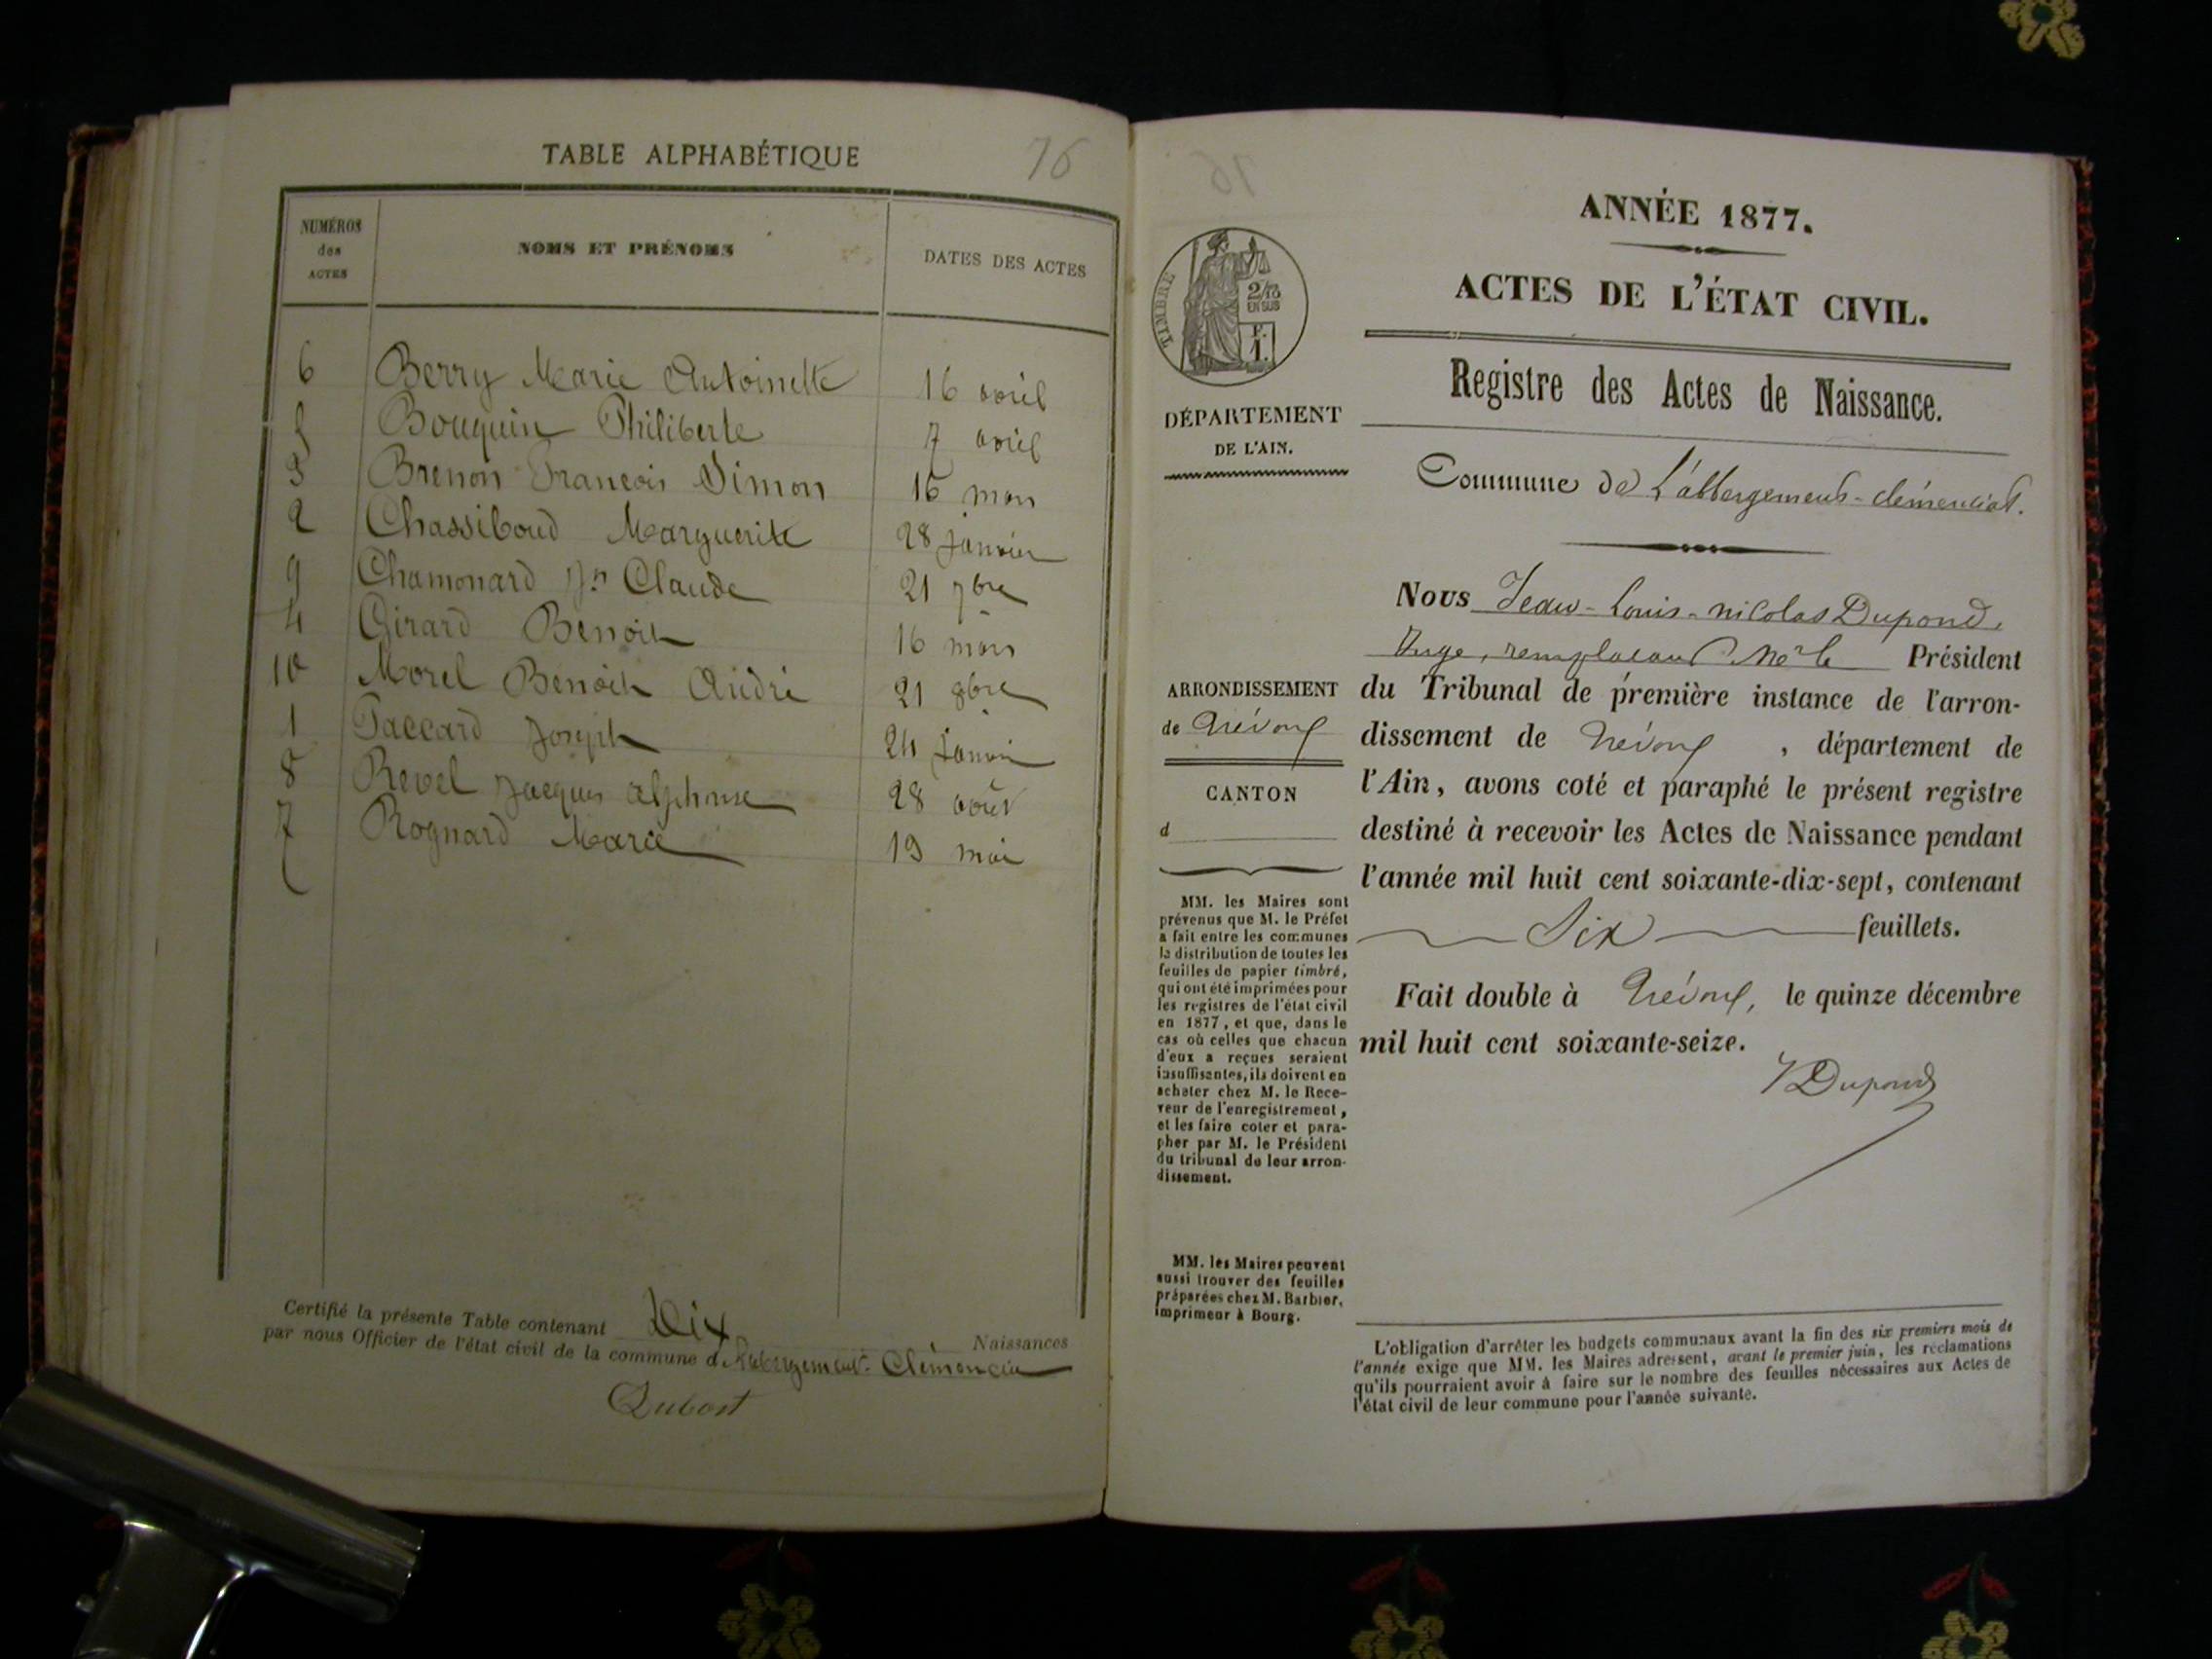 TABLE ALPHABÉTIQUE
76
NUMÉROS des ACTES
NOMS ET PRÉNOMS
DATES DES ACTES
6 Berry Marie Antoinette 16 avril
5 Bouquin Philiberte 7 avril
3 Brenon François Simon 16 mars
2 Chassiboud Marguerite 28 janvier
9 Chamonard Jn Claude 21 7bre
4 Girard Benoit 16 mars
10 Morel Benoit André 21 8bre
1 Paccard Joseph 24 janvier
8 Revel Jacques alphonse 28 août
7 Rognard Marie 19 mai
Certifié la présente Table contenant Dix Naissances
par nous Officier de l'état civil de la commune d'Abergement-Clémencia
Dubost
ANNÉE 1877.
ACTES DE L'ÉTAT CIVIL.
Registre des Actes de Naissance.
TIMBRE
2/10
EN SUS
F.
1.
DÉPARTEMENT
DE L'AIN.
Commune de L'abbergement-clémenciat.
Nous Jean-Louis-nicolas Dupond,
Juge, remplaçant Mr le Président
du Tribunal de première instance de l'arron-
dissement de Trévoux, département de
l'Ain, avons coté et paraphé le présent registre
destiné à recevoir les Actes de Naissance pendant
l'année mil huit cent soixante-dix-sept, contenant
Six feuillets.
Fait double à Trévoux, le quinze décembre
mil huit cent soixante-seize.
Dupond
ARRONDISSEMENT
de Trévoux
CANTON
d
MM. les Maires sont
prévenus que M. le Préfet
a fait entre les communes
la distribution de toutes les
feuilles de papier timbré,
qui ont été imprimées pour
les registres de l'état civil
en 1877, et que, dans le
cas où celles que chacun
d'eux a reçues seraient
insuffisantes, ils doivent en
acheter chez M. le Rece-
veur de l'enregistrement,
et les faire coter et para-
pher par M. le Président
du tribunal de leur arron-
dissement.
MM. les Maires peuvent
aussi trouver des feuilles
préparées chez M. Barbier,
imprimeur à Bourg.
L'obligation d'arrêter les budgets communaux avant la fin des six premiers mois de
l'année exige que MM. les Maires adressent, avant le premier juin, les réclamations
qu'ils pourraient avoir à faire sur le nombre des feuilles nécessaires aux Actes de
l'état civil de leur commune pour l'année suivante.